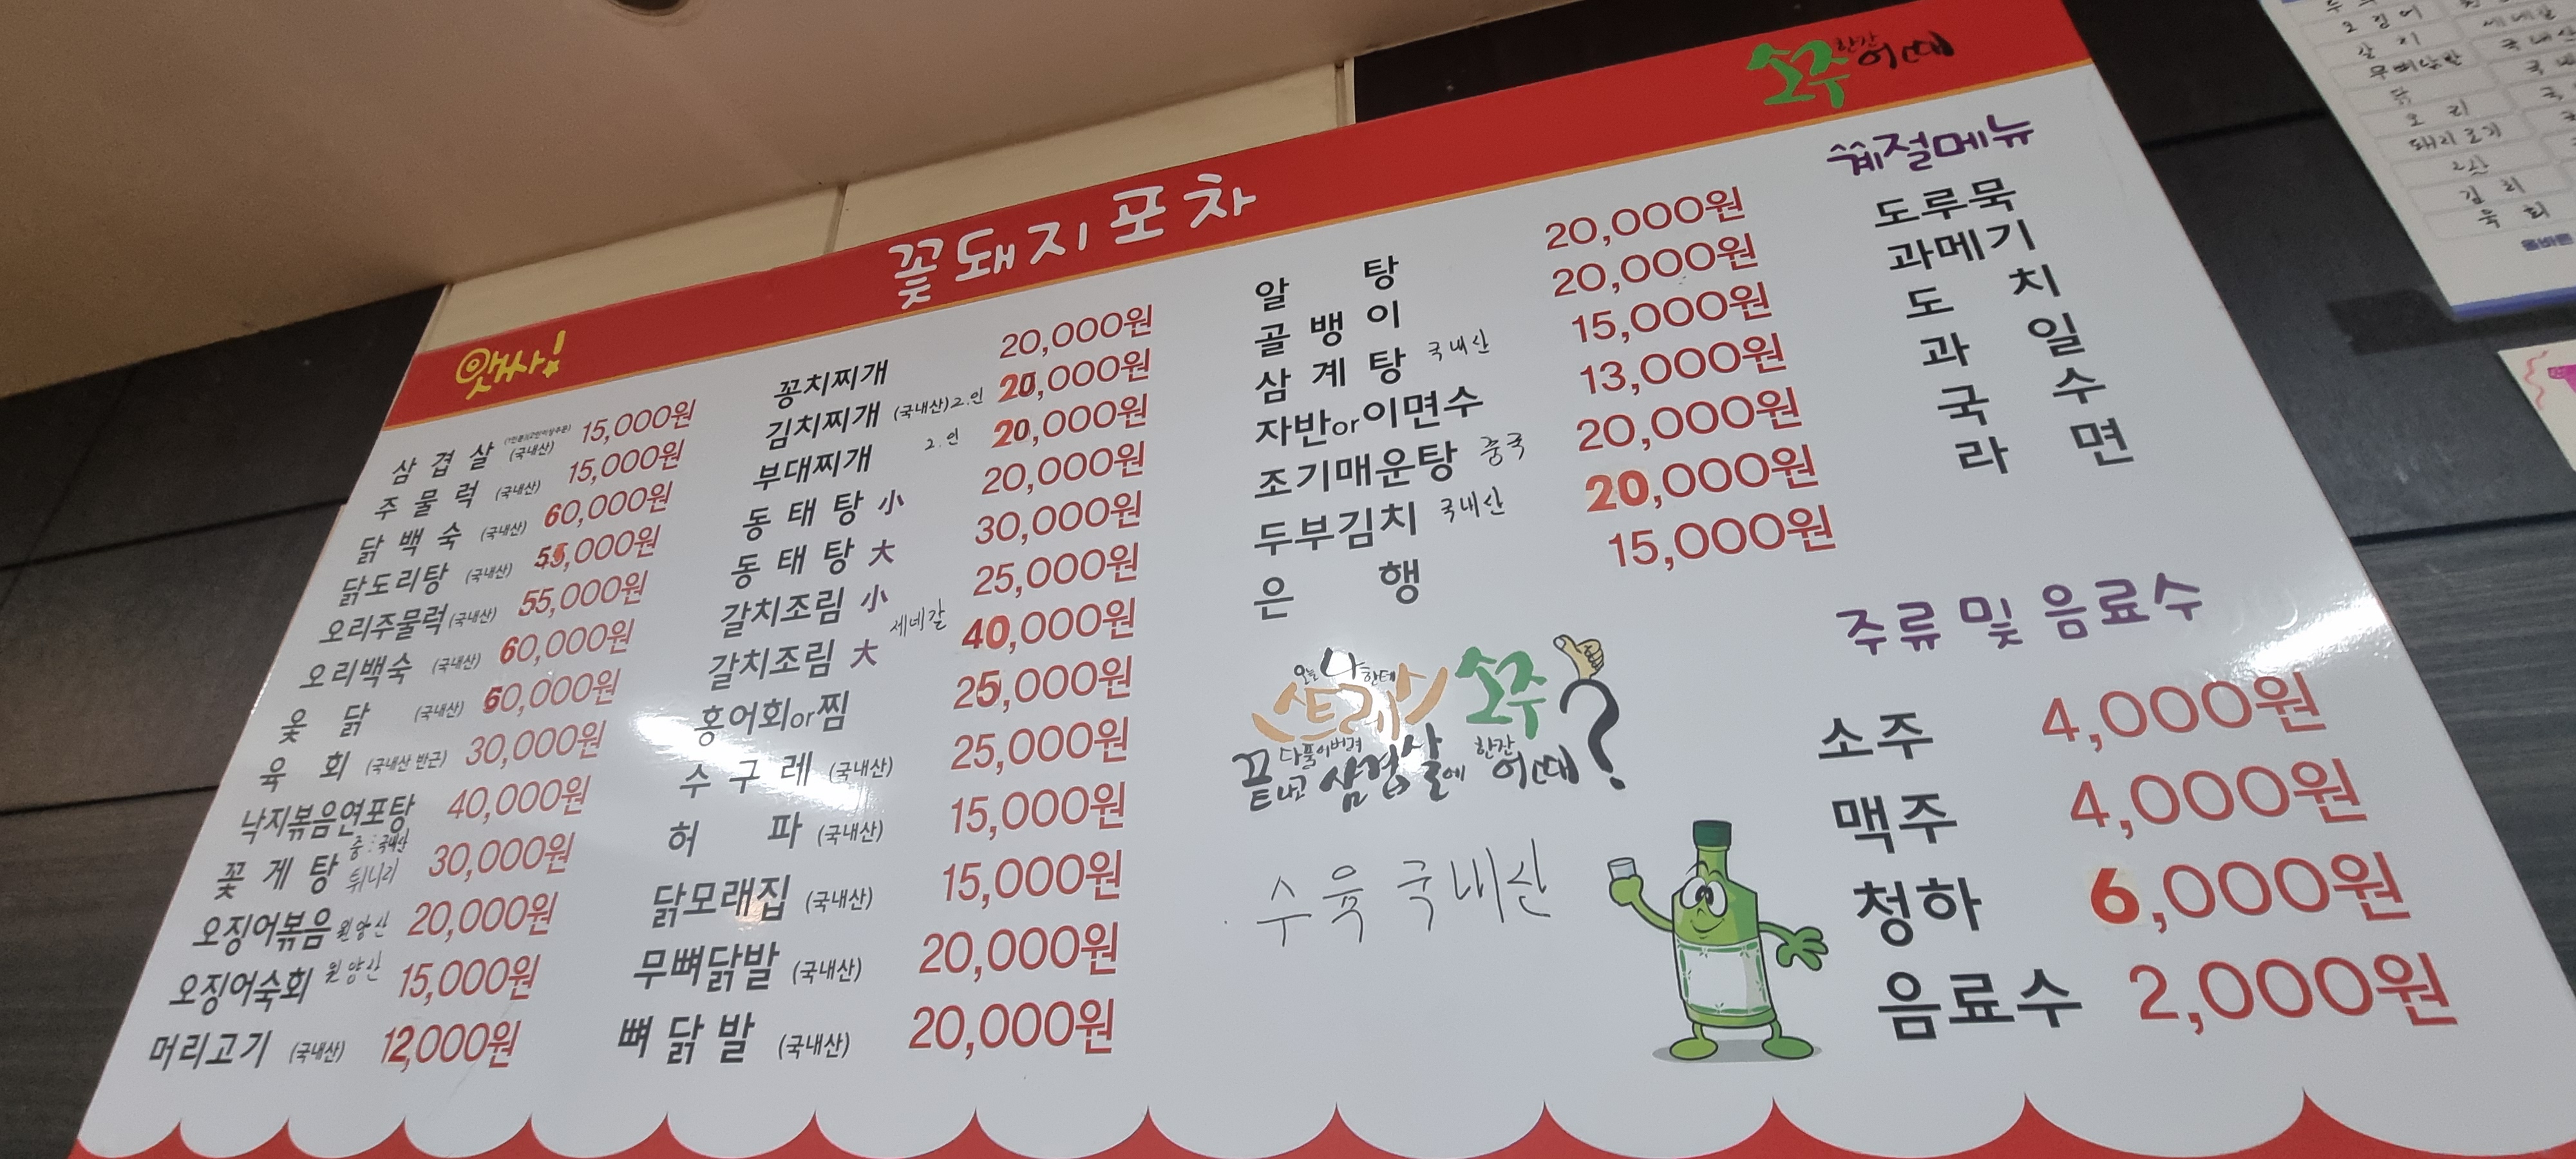 꽃돼지포차
앗싸!
소주 한잔 어때
삼겹살 (국내산) 15,000원
주물럭 (국내산) 15,000원
닭백숙 (국내산) 60,000원
닭도리탕 (국내산) 55,000원
오리주물럭 (국내산) 55,000원
오리백숙 (국내산) 60,000원
옻닭 (국내산) 60,000원
육회 (국내산 반근) 30,000원
낙지볶음연포탕 40,000원
중:국내산
꽃게탕 튀니지 30,000원
오징어볶음 원양산 20,000원
오징어숙회 원양산 15,000원
머리고기 (국내산) 12,000원
꽁치찌개 20,000원
김치찌개 (국내산) 2.인 20,000원
부대찌개 2.인 20,000원
동태탕 小 20,000원
동태탕 大 30,000원
갈치조림 小 25,000원
갈치조림 大 세네갈 40,000원
홍어회or찜 25,000원
수구레 (국내산) 25,000원
허파 (국내산) 15,000원
닭모래집 (국내산) 15,000원
무뼈닭발 (국내산) 20,000원
뼈닭발 (국내산) 20,000원
알탕 20,000원
골뱅이 20,000원
삼계탕 국내산 15,000원
자반or이면수 13,000원
조기매운탕 중국 20,000원
두부김치 국내산 20,000원
은행 15,000원
오늘 나한테
스트레스 소주
다풀어버려 한잔
끝내고 삼겹살에 어때?
수육 국내산
계절메뉴
도루묵
과메기
도치
과일
국수
라면
주류 및 음료수
소주 4,000원
맥주 4,000원
청하 6,000원
음료수 2,000원
오징어
세네갈
갈치
국내산
무뼈닭발
닭
오리
돼지고기
김치
육회
올바른